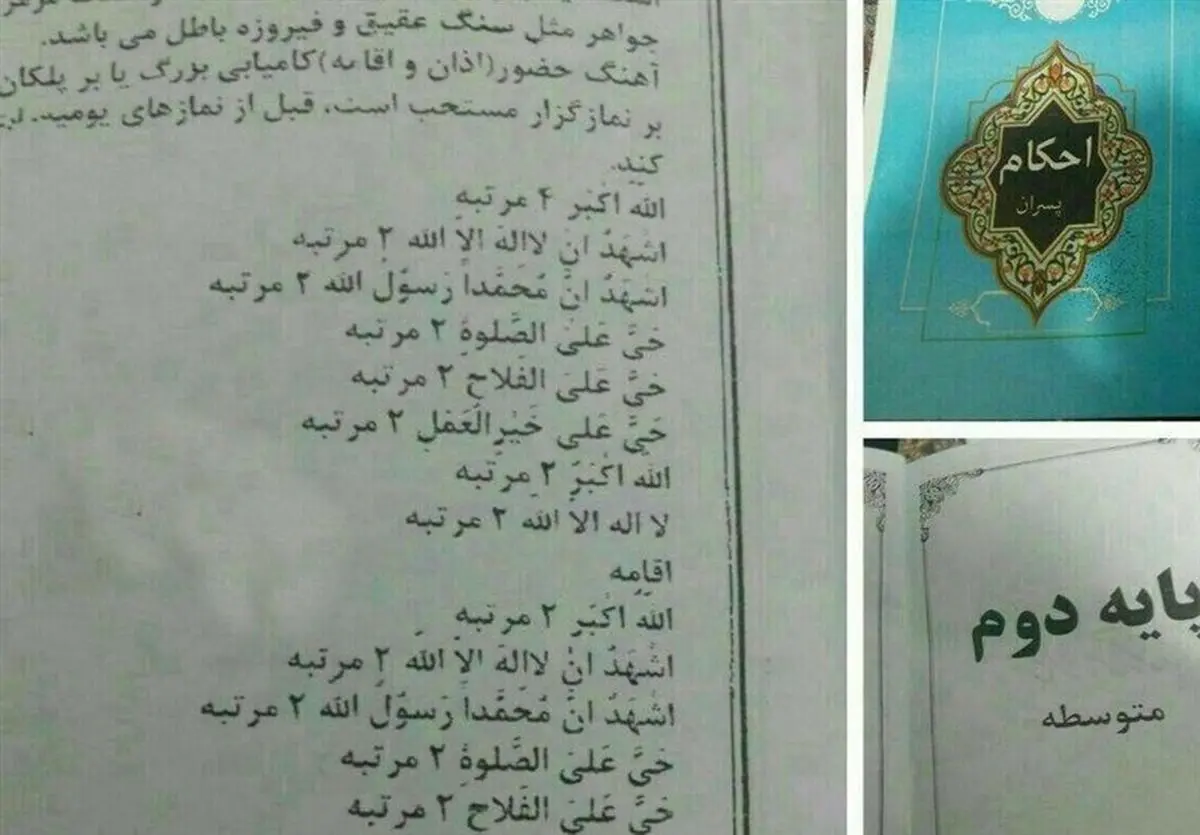 جواهر مثل سنگ عقیق و فیروزه باطل می باشد.
آهنگ حضور(اذان و اقامه)کامیابی بزرگ یا بر پلکان
بر نمازگزار مستحب است، قبل از نمازهای یومیه،
کند.
الله اَکْبَر ۴ مرتبه
اَشْهَدُ اَنْ لااِلهَ اِلاَّ الله ۲ مرتبه
اَشْهَدُ اَنَّ مُحَمَّداً رَسوُلُ الله ۲ مرتبه
حَیَّ عَلیَ الصَّلوةِ ۲ مرتبه
حَیَّ عَلیَ الفَلاحِ ۲ مرتبه
حَیَّ عَلی خَیْرِالْعَمَلِ ۲ مرتبه
الله اَکْبَرَ ۲ مرتبه
لا اله الا الله ۲ مرتبه
اقامه
الله اَکْبَر ۲ مرتبه
اَشْهَدُ اَنْ لااِلهَ اِلاَّ الله ۲ مرتبه
اَشْهَدُ اَنَّ مُحَمَّداً رَسوُلُ الله ۲ مرتبه
حَیَّ عَلیَ الصَّلوةِ ۲ مرتبه
حَیَّ عَلیَ الفَلاحِ ۲ مرتبه
احکام
پسران
پایه دوم
متوسطه